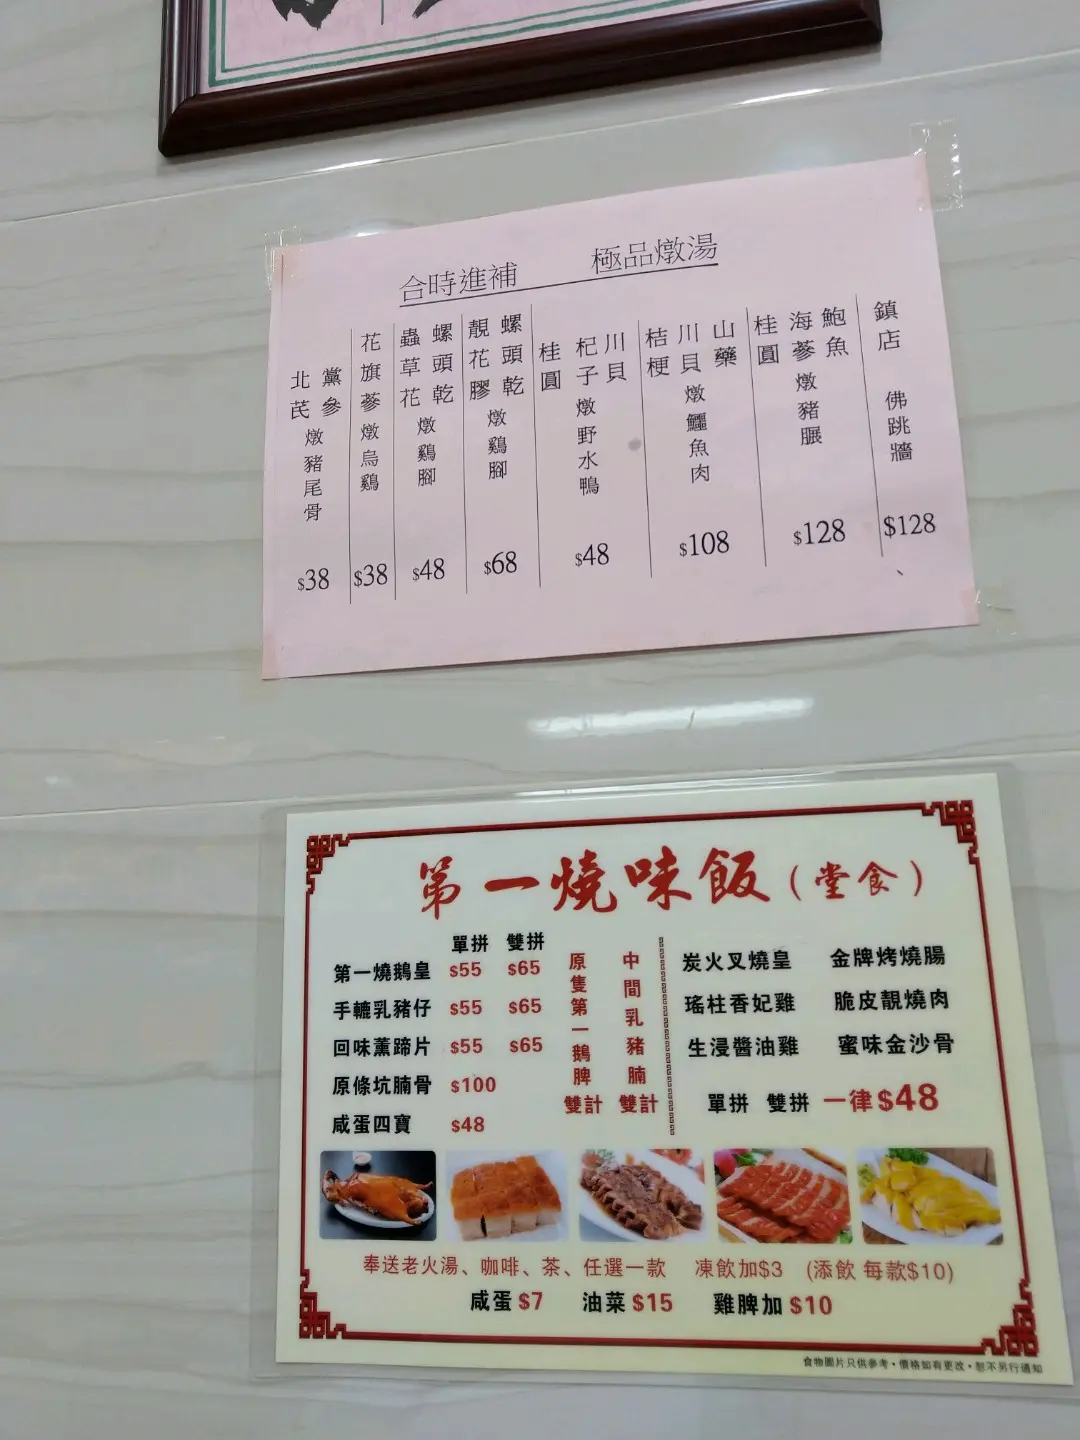 合時進補 極品燉湯
鎮店 佛跳牆 $128
鮑魚 海蔘 桂圓 燉豬𦟌 $128
山藥 川貝 桔梗 燉鱷魚肉 $108
川貝 杞子 桂圓 燉野水鴨 $48
螺頭乾 靚花膠 燉鷄腳 $68
螺頭乾 蟲草花 燉鷄腳 $48
花旗蔘 燉烏鷄 $38
黨參 北芪 燉豬尾骨 $38
第一燒味飯(堂食)
單拼 雙拼
第一燒鵝皇 $55 $65
手轆乳豬仔 $55 $65
回味薰蹄片 $55 $65
原條坑腩骨 $100
咸蛋四寶 $48
原隻第一鵝脾雙計
中間乳豬腩雙計
炭火叉燒皇 金牌烤燒腸
瑤柱香妃雞 脆皮靚燒肉
生浸醬油雞 蜜味金沙骨
單拼 雙拼 一律$48
奉送老火湯、咖啡、茶、任選一款 凍飲加$3 (添飲 每款$10)
咸蛋$7 油菜$15 雞脾加$10
食物圖片只供參考・價格如有更改・恕不另行通知